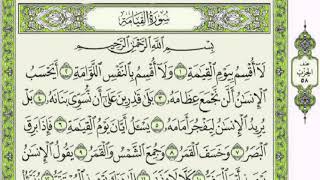 سُورَةُ الْقِيَامَةِ
بِسْمِ اللَّهِ الرَّحْمَٰنِ الرَّحِيمِ
لَا أُقْسِمُ بِيَوْمِ الْقِيَٰمَةِ ١ وَلَا أُقْسِمُ بِالنَّفْسِ اللَّوَّامَةِ ٢ أَيَحْسَبُ
الْإِنسَٰنُ أَلَّن نَّجْمَعَ عِظَامَهُ ٣ بَلَىٰ قَٰدِرِينَ عَلَىٰ أَن نُّسَوِّيَ بَنَانَهُ ٤ بَلْ
يُرِيدُ الْإِنسَٰنُ لِيَفْجُرَ أَمَامَهُ ٥ يَسْـَٔلُ أَيَّانَ يَوْمُ الْقِيَٰمَةِ ٦ فَإِذَا بَرِقَ
الْبَصَرُ ٧ وَخَسَفَ الْقَمَرُ ٨ وَجُمِعَ الشَّمْسُ وَالْقَمَرُ ٩ يَقُولُ الْإِنسَٰنُ
الحزب
٥٨